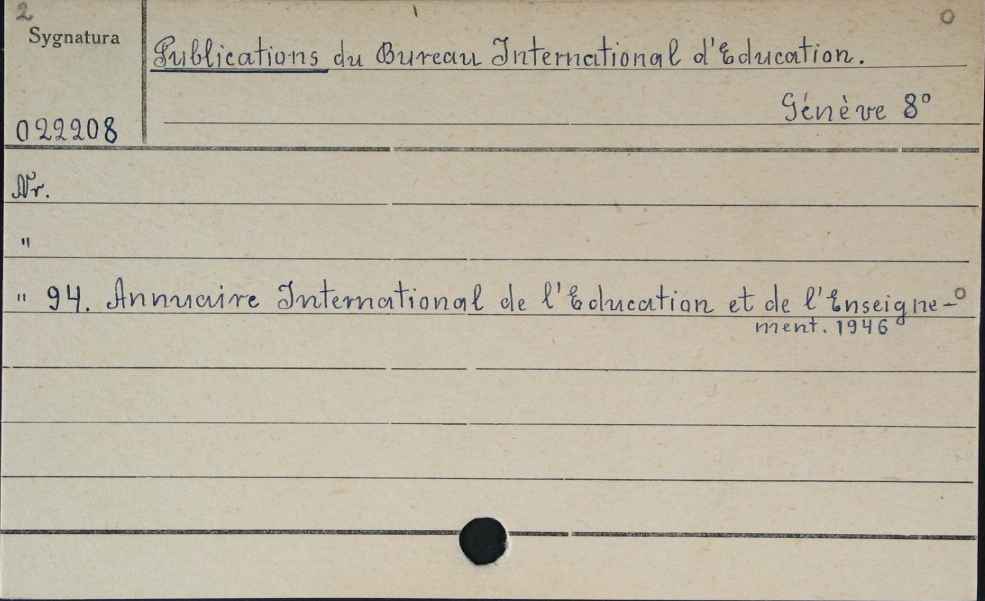 2
Sygnatura
Publications du Bureau International d'Education.
Génève 8°
022208
Nr.
"
" 94. Annuaire International de l'Education et de l'Enseigne-
ment. 1946